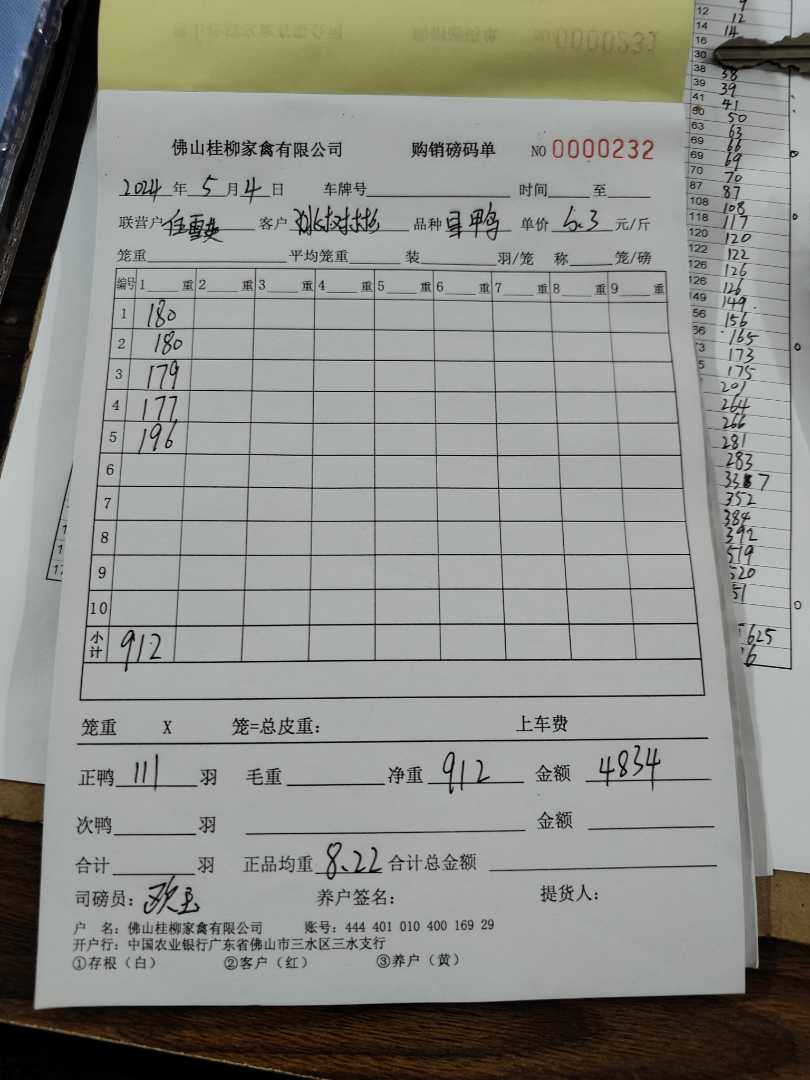 佛山桂柳家禽有限公司 购销磅码单 NO 0000232
2024年5月4日 车牌号 时间 至
联营户 客户 品种 鸭 单价 5.3 元/斤
笼重 平均笼重 装 羽/笼 称 笼/磅
编号 1 重 2 重 3 重 4 重 5 重 6 重 7 重 8 重 9 重
1 180
2 180
3 179
4 177
5 196
6
7
8
9
10
小计 912
笼重 X 笼=总皮重: 上车费
正鸭 111 羽 毛重 净重 912 金额 4834
次鸭 羽 金额
合计 羽 正品均重 8.22 合计总金额
司磅员: 养户签名: 提货人:
户 名: 佛山桂柳家禽有限公司 账号: 444 401 010 400 169 29
开户行: 中国农业银行广东省佛山市三水区三水支行
①存根（白） ②客户（红） ③养户（黄）
0000231
12 9
14 12
16 14
30
38 38
39 39
41 41
50 50
63 63
69 66
69 69
70 70
87 87
108 108
118 117
120 120
122 122
126 126
126 126
149 149
56 156
66 165
73 173
175
201
264
266
281
283
352
384
392
519
520
51
625